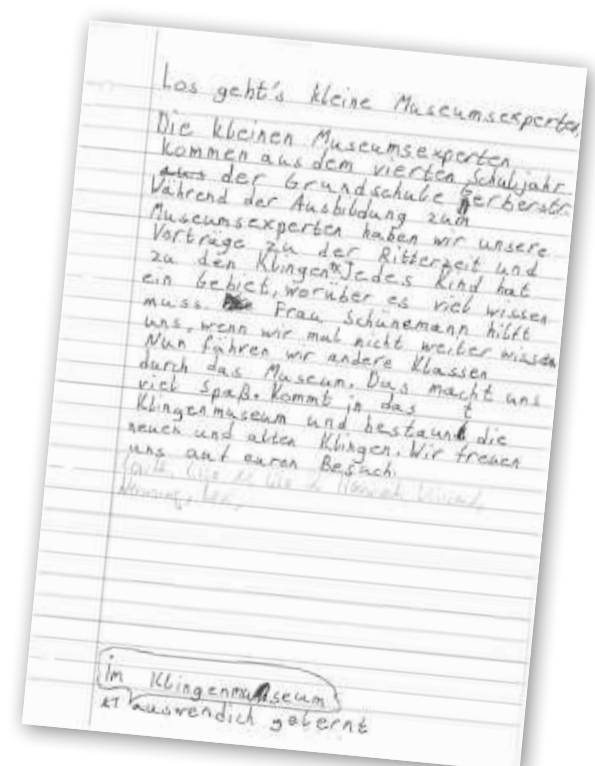 Los geht's kleine Museumsexperten
Die kleinen Museumsexperten
kommen aus dem vierten Schuljahr
aus der Grundschule Gerberstr.
Während der Ausbildung zum
Museumsexperten haben wir unsere
Vorträge zu der Ritterzeit und
zu den Klingen* Jedes Kind hat
ein Gebiet, worüber es viel wissen
muss. Frau Schünemann hilft
uns, wenn wir mal nicht weiter wissen
Nun führen wir andere Klassen
durch das Museum. Das macht uns
viel Spaß. Kommt in das
Klingenmuseum und bestaunt die
neuen und alten Klingen. Wir freuen
uns auf euren Besuch.
im Klingenmuseum
*1 auswendich gelernt